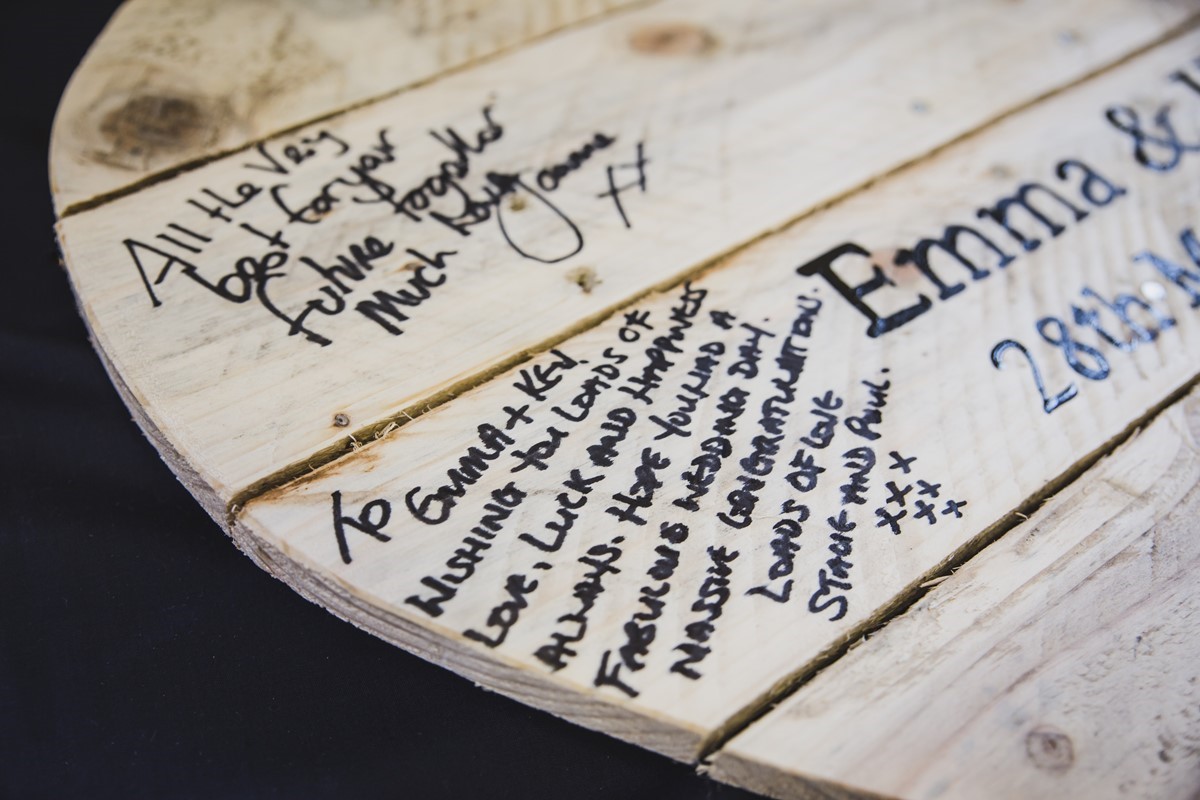 All the Very
best for your
future together
Much love Joanne
xx
Emma &
28th M
TO EMMA + KEV!
WISHING YOU LOADS OF
LOVE, LUCK AND HAPPINESS
ALWAYS. HOPE YOU HAD A
FABULOUS WEDDING DAY.
MASSIVE CONGRATULATIONS.
LOADS OF LOVE
STACIE AND PAUL.
xxx
xx
x